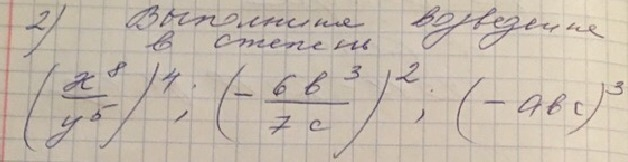 2) Выполните возведение
в степень
(x⁸/y⁵)⁴; (-6b³/7c)²; (-abc)³